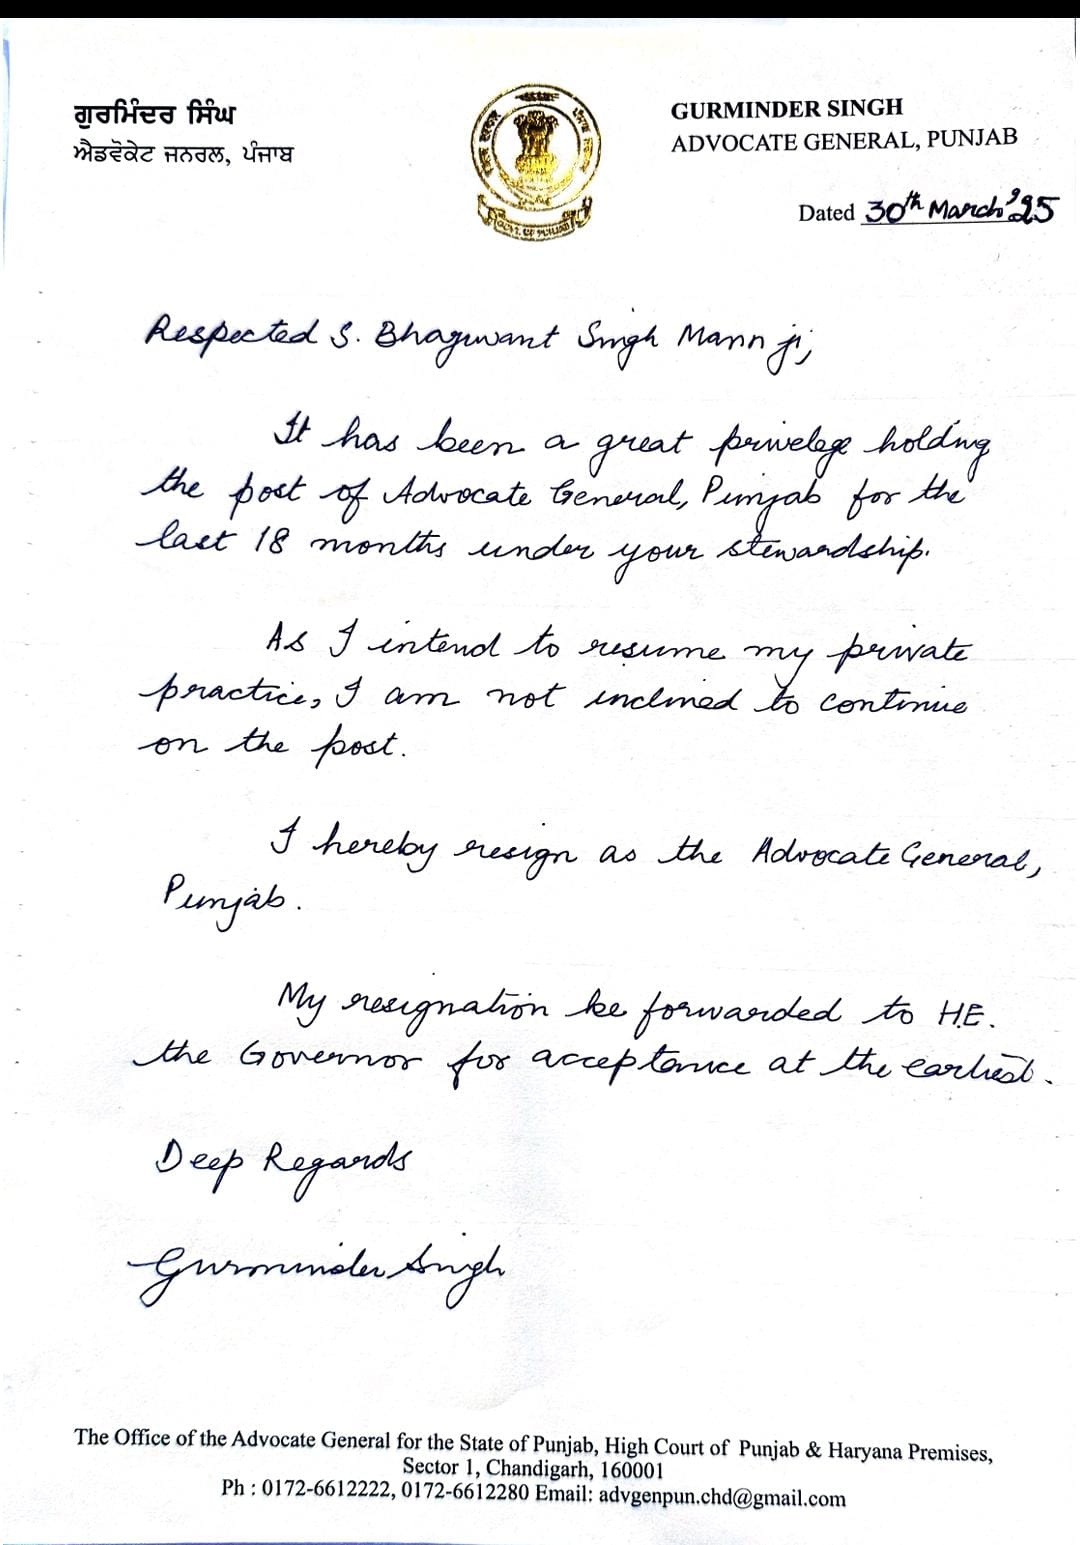 ਗੁਰਮਿੰਦਰ ਸਿੰਘ
ਐਡਵੋਕੇਟ ਜਨਰਲ, ਪੰਜਾਬ
GOVT. OF PUNJAB
GURMINDER SINGH
ADVOCATE GENERAL, PUNJAB
Dated 30th March '25
Respected S. Bhagwant Singh Mann ji,
It has been a great privelege holding
the post of Advocate General, Punjab for the
last 18 months under your stewardship.
As I intend to resume my private
practice, I am not inclined to continue
on the post.
I hereby resign as the Advocate General,
Punjab.
My resignation be forwarded to H.E.
the Governor for acceptance at the earliest.
Deep Regards
Gurminder Singh
The Office of the Advocate General for the State of Punjab, High Court of Punjab & Haryana Premises,
Sector 1, Chandigarh, 160001
Ph : 0172-6612222, 0172-6612280 Email: advgenpun.chd@gmail.com